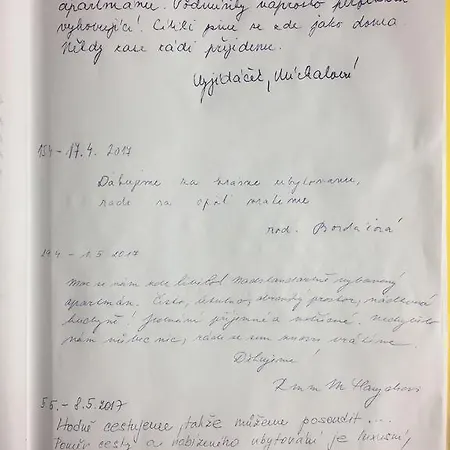 apartmánu. Podmínky naprosto
vyhovující! Cítili jsme se zde jako doma
Někdy zase rádi přijdeme.
15.4 - 17.4. 2017
Ďakujeme za krásne ubytovanie,
rada sa opäť vrátime
rod.
29.4 - 1.5 2017
moc se nám zde líbilo! Nadstandardně vybavený
apartmán. Čisto, útulno, obrovský prostor,
kuchyně! Jednání příjemné a
nám vůbec nic, rádi se sem znovu vrátíme.
Děkujeme!
5.5. - 8.5.2017
Hodně cestujeme, takže můžeme posoudit ...
Poměr cesty a nabízeného ubytování je luxusní,